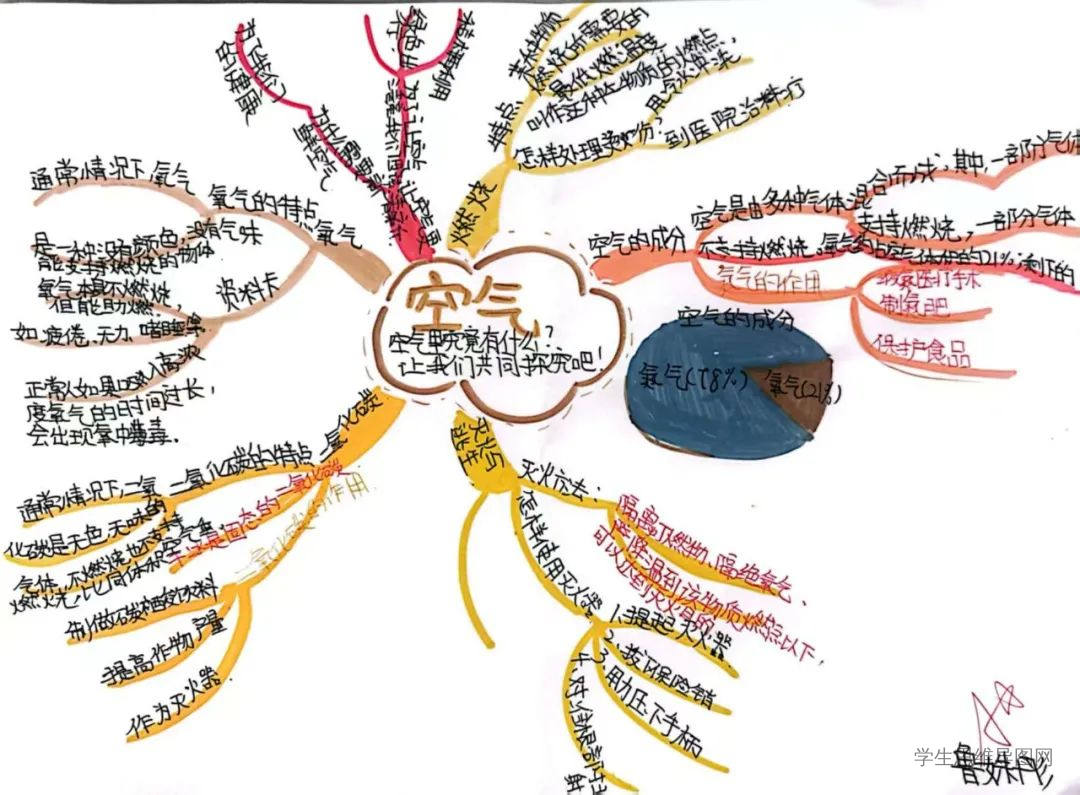 空气
空气里究竟有什么?
让我们共同探究吧!
空气的成分
空气是由多种气体混合而成,其中,一部分气体
支持燃烧,一部分气体
不支持燃烧。氧气约占空气体积的21%;剩下的
氧气的作用
制氧吧
保护食品
空气的成分
氮气(78%)
氧气(21%)
燃烧
特点
某种物质
燃烧所需要的
最低燃烧温度
叫作这种生物质的燃烧点,
怎样处理烫伤:
用冷水冲洗
到医院治料疗
为了人们
的健康
氧气
氧气的特点
通常情况下,氧气
是一种没有颜色,没有气味
能支持燃烧的物体
资料卡
氧气本身不燃烧
但能助燃.
如,疲倦、无力、嗜睡等.
正常人如果吸入高浓
度氧气的时间过长,
会出现氧中毒毒.
二氧化碳
二氧化碳的特点
通常情况下,二氧
化碳是无色,无味的
气体,不燃烧也不支持
燃烧,比同体积空气重
干冰是固态的二氧化碳
二氧化碳的作用
制做石炭酸饮料
提高作物产量
作为灭火器.
灭火与
逃生
灭火方法:
隔离可燃物、隔绝氧气、
降温到该物质燃点以下,
可以达到灭火目的
怎样使用灭火器
1.提起灭火器.
2、拔保险销
3、用力压下手柄
4、对准根部扫
射
鲁姝彤
学生思维导图网